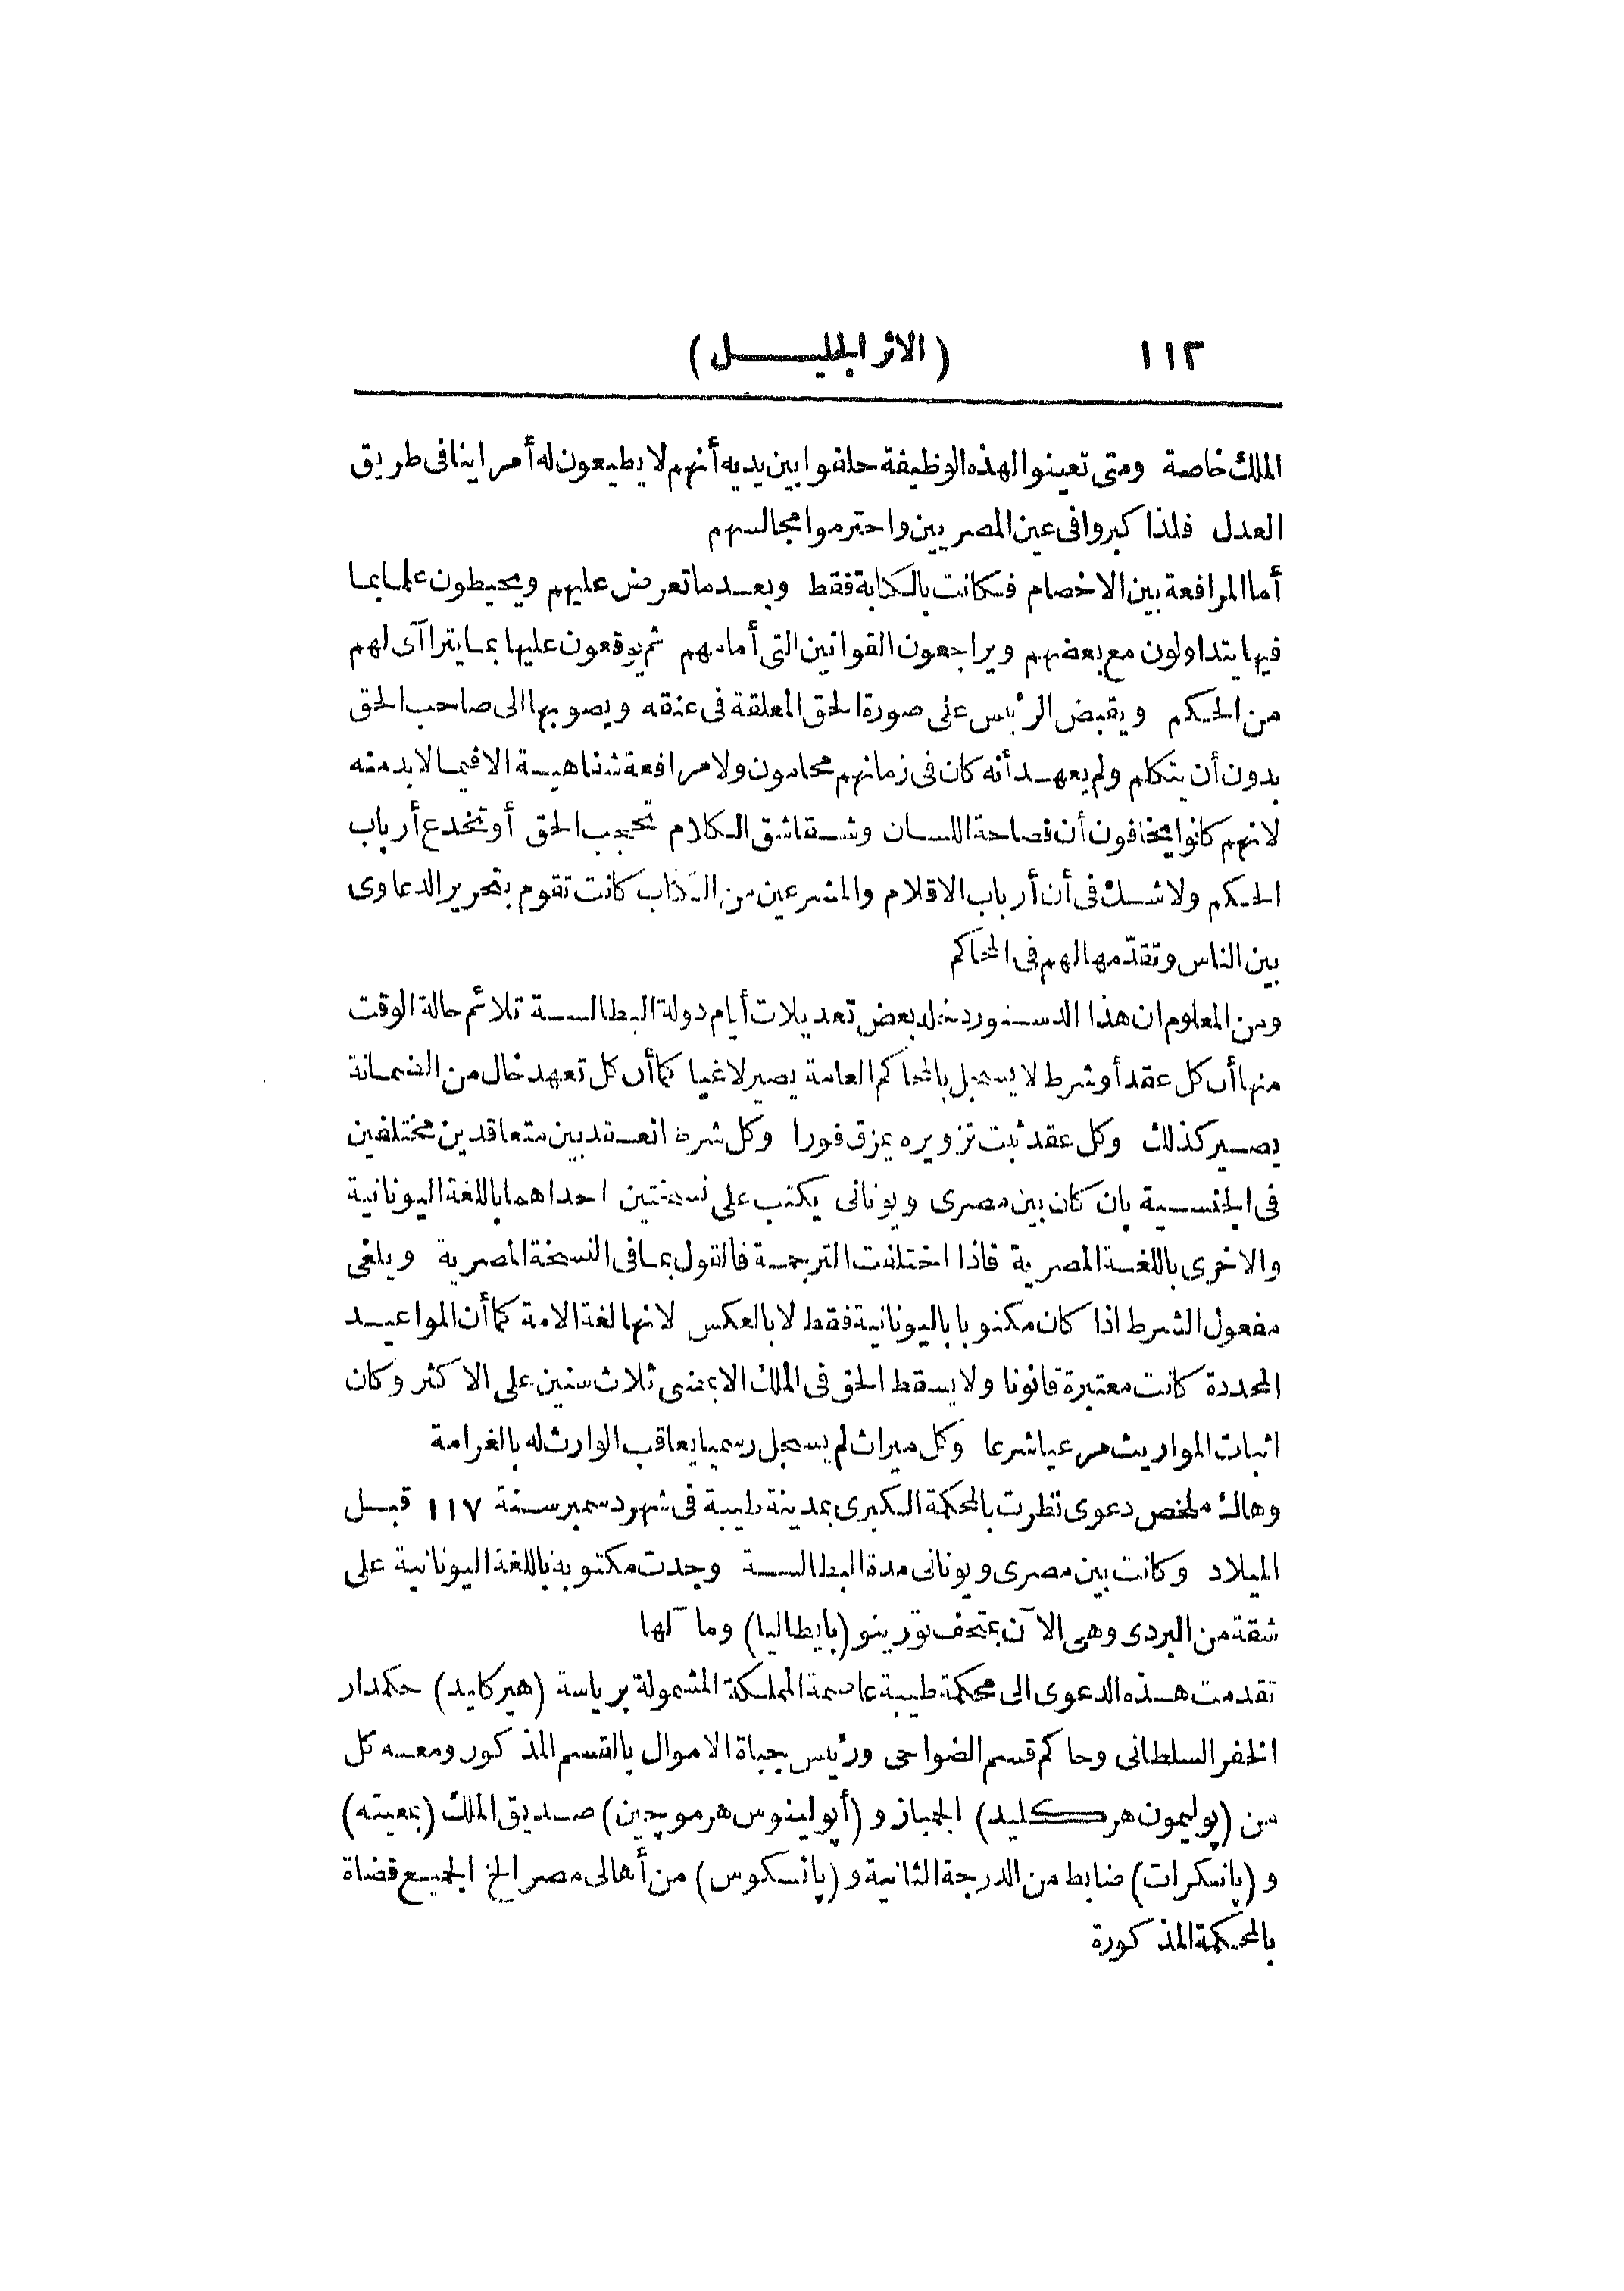 ١١٢ (الاثر الجليـــل)
الملك خاصة ومتى تعينوا لهذه الوظيفة حلفوا بين يديه أنهم لا يطيعون له أمرا ينافى طريق
العدل فلذا كبروا فى عين المصريين واحترموا مجالسهم
أما المرافعة بين الاخصام فكانت بالكتابة فقط وبعد ما تعرض عليهم ويحيطون علما بما
فيها يتداولون مع بعضهم ويراجعون القوانين التى أمامهم ثم يوقعون عليها بما يتراآى لهم
من الحكم ويقبض الرئيس على صورة الحق المعلقة فى عنقه ويصوبها الى صاحب الحق
بدون أن يتكلم ولم يعهد أنه كان فى زمانهم محامون ولا مرافعة شفاهية الا فيما لابد منه
لانهم كانوا يخافون أن فصاحة اللسان وشقاشق الكلام تحجب الحق أو تخدع أرباب
الحكم ولا شك فى أن أرباب الاقلام والمشرعين من الكتاب كانت تقوم بتحرير الدعاوى
بين الناس وتقدّمها لهم فى المحاكم
ومن المعلوم ان هذا الدستور دخله بعض تعديلات أيام دولة البطالسة تلائم حالة الوقت
منها أن كل عقد أو شرط لا يسجل بالمحاكم العامة يصير لاغيا كما أن كل تعهد خال من الضمانة
يصير كذلك وكل عقد ثبت تزويره يمزق فورا وكل شرط انعقد بين متعاقدين مختلفين
فى الجنسية بان كان بين مصرى ويونانى يكتب على نسختين احداهما باللغة اليونانية
والاخرى باللغة المصرية فاذا اختلفت الترجمة فالقول بما فى النسخة المصرية ويلغى
مفعول الشرط اذا كان مكتوبا باليونانية فقط لا بالعكس لانها لغة الامة كما أن المواعيد
المحددة كانت معتبرة قانونا ولا يسقط الحق فى الملك الا بمضى ثلاث سنين على الاكثر وكان
اثبات المواريث مرعيا شرعا وكل ميراث لم يسجل رسميا يعاقب الوارث له بالغرامة
وهاك ملخص دعوى نظرت بالمحكمة الكبرى بمدينة طيبة فى شهر دسمبر سنة ١١٧ قبل
الميلاد وكانت بين مصرى ويونانى مدة البطالسة وجدت مكتوبة باللغة اليونانية على
شقة من البردى وهى الآن بمتحف تورينو (بايطاليا) ومآلها
تقدمت هذه الدعوى الى محكمة طيبة عاصمة المملكة المشمولة برياسة (هيركليد) حكمدار
الخفر السلطانى وحاكم قسم الضواحى ورئيس جباة الاموال بالقسم المذكور ومعه كل
من (پوليمون هركليد) الجمباز و (أپولينوس هرموچين) صديق الملك (بمعيته)
و (پانسكرات) ضابط من الدرجة الثانية و (پانسكوس) من أهالى مصر الخ الجميع قضاة
بالمحكمة المذكورة